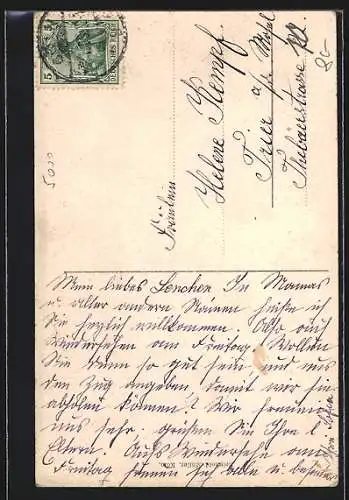 5 5
DEUTSCHES REICH
5000
Fräulein
Helene Kempf.
Trier a/d Mosel
Thebäerstrasse
Mein liebes Lenchen In Mamas
u. aller andern Namen heiße ich
Sie herzlich willkommen. Also auf
Wiedersehen am Freitag. Wollen
Sie denn so gut sein, und uns
den Zug angeben, damit wir Sie
abholen können! Wir freuen
uns sehr. Grüßen Sie Ihre l
Eltern. Aufs Wiedersehn am
Freitag freuen sich alle u.